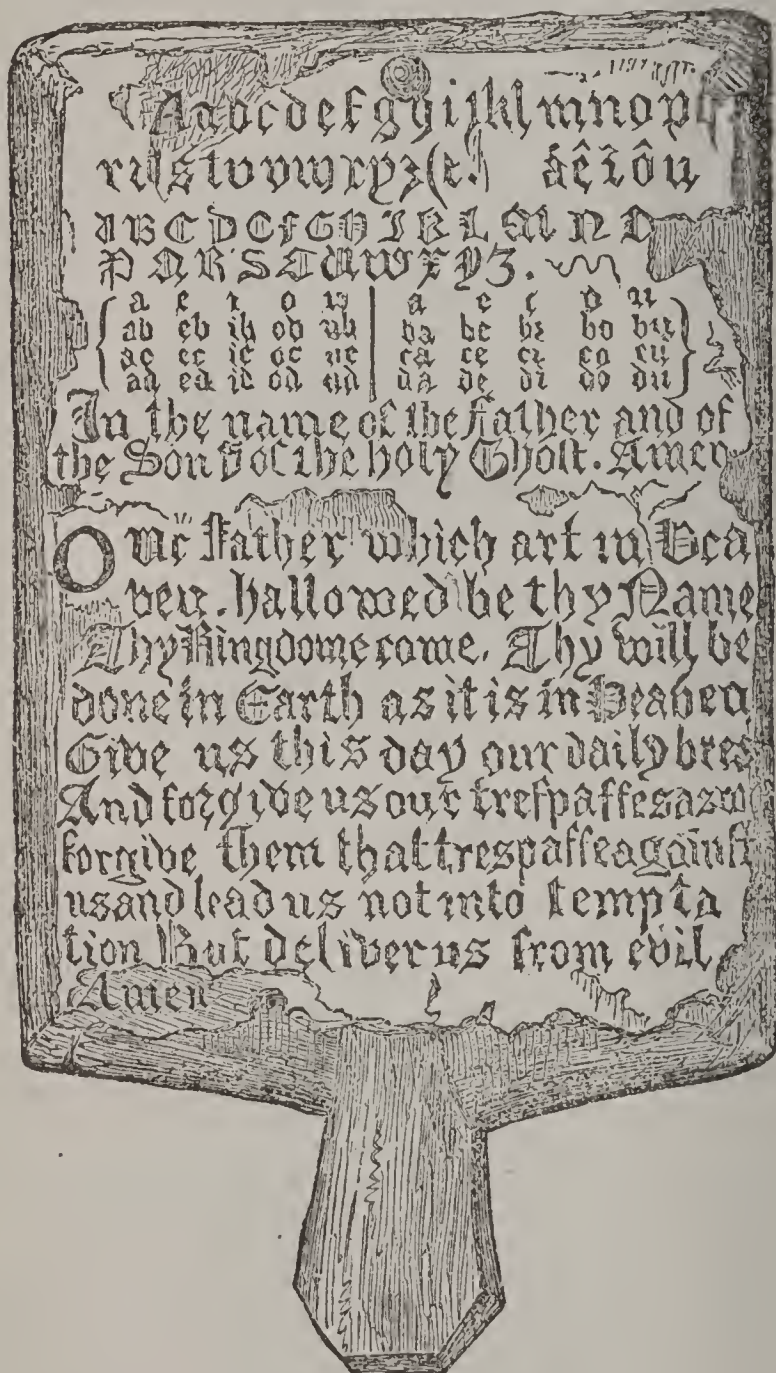 Aabcdefghijklmnopq
rzſstvvuwxyz&. áêîôu
ABCDEFGHIKLMNO
PQRSTUWXYZ.
a e i o u a e i o u
ab eb ib ob ub ba be bi bo bu
ac ec ic oc uc ca ce ci co cu
ad ed id od ud da de di do du
In the name of the Father and of
the Son & of the holy Ghoſt. Amen
Our Father which art in Hea
ven. hallowed be thy Name
Thy Kingdome come. Thy will be
done in Earth as it is in Heaven
Give us this day our daily brea
And forgive us our treſpaſſes as we
forgive them that trespaſſe againſt
us and lead us not into tempta
tion But deliver us from evil
Amen